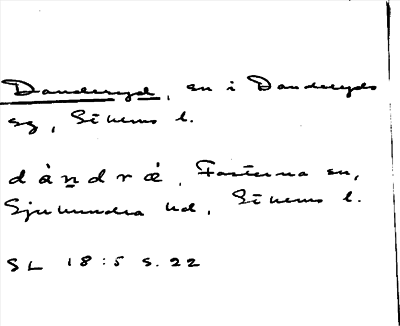 Danderyd, sn i Danderyds
sg, Sthlms l.
dàndrè, Fasterna sn,
Sjuhundra hd, Sthlms l.
SL 18:5 s. 22